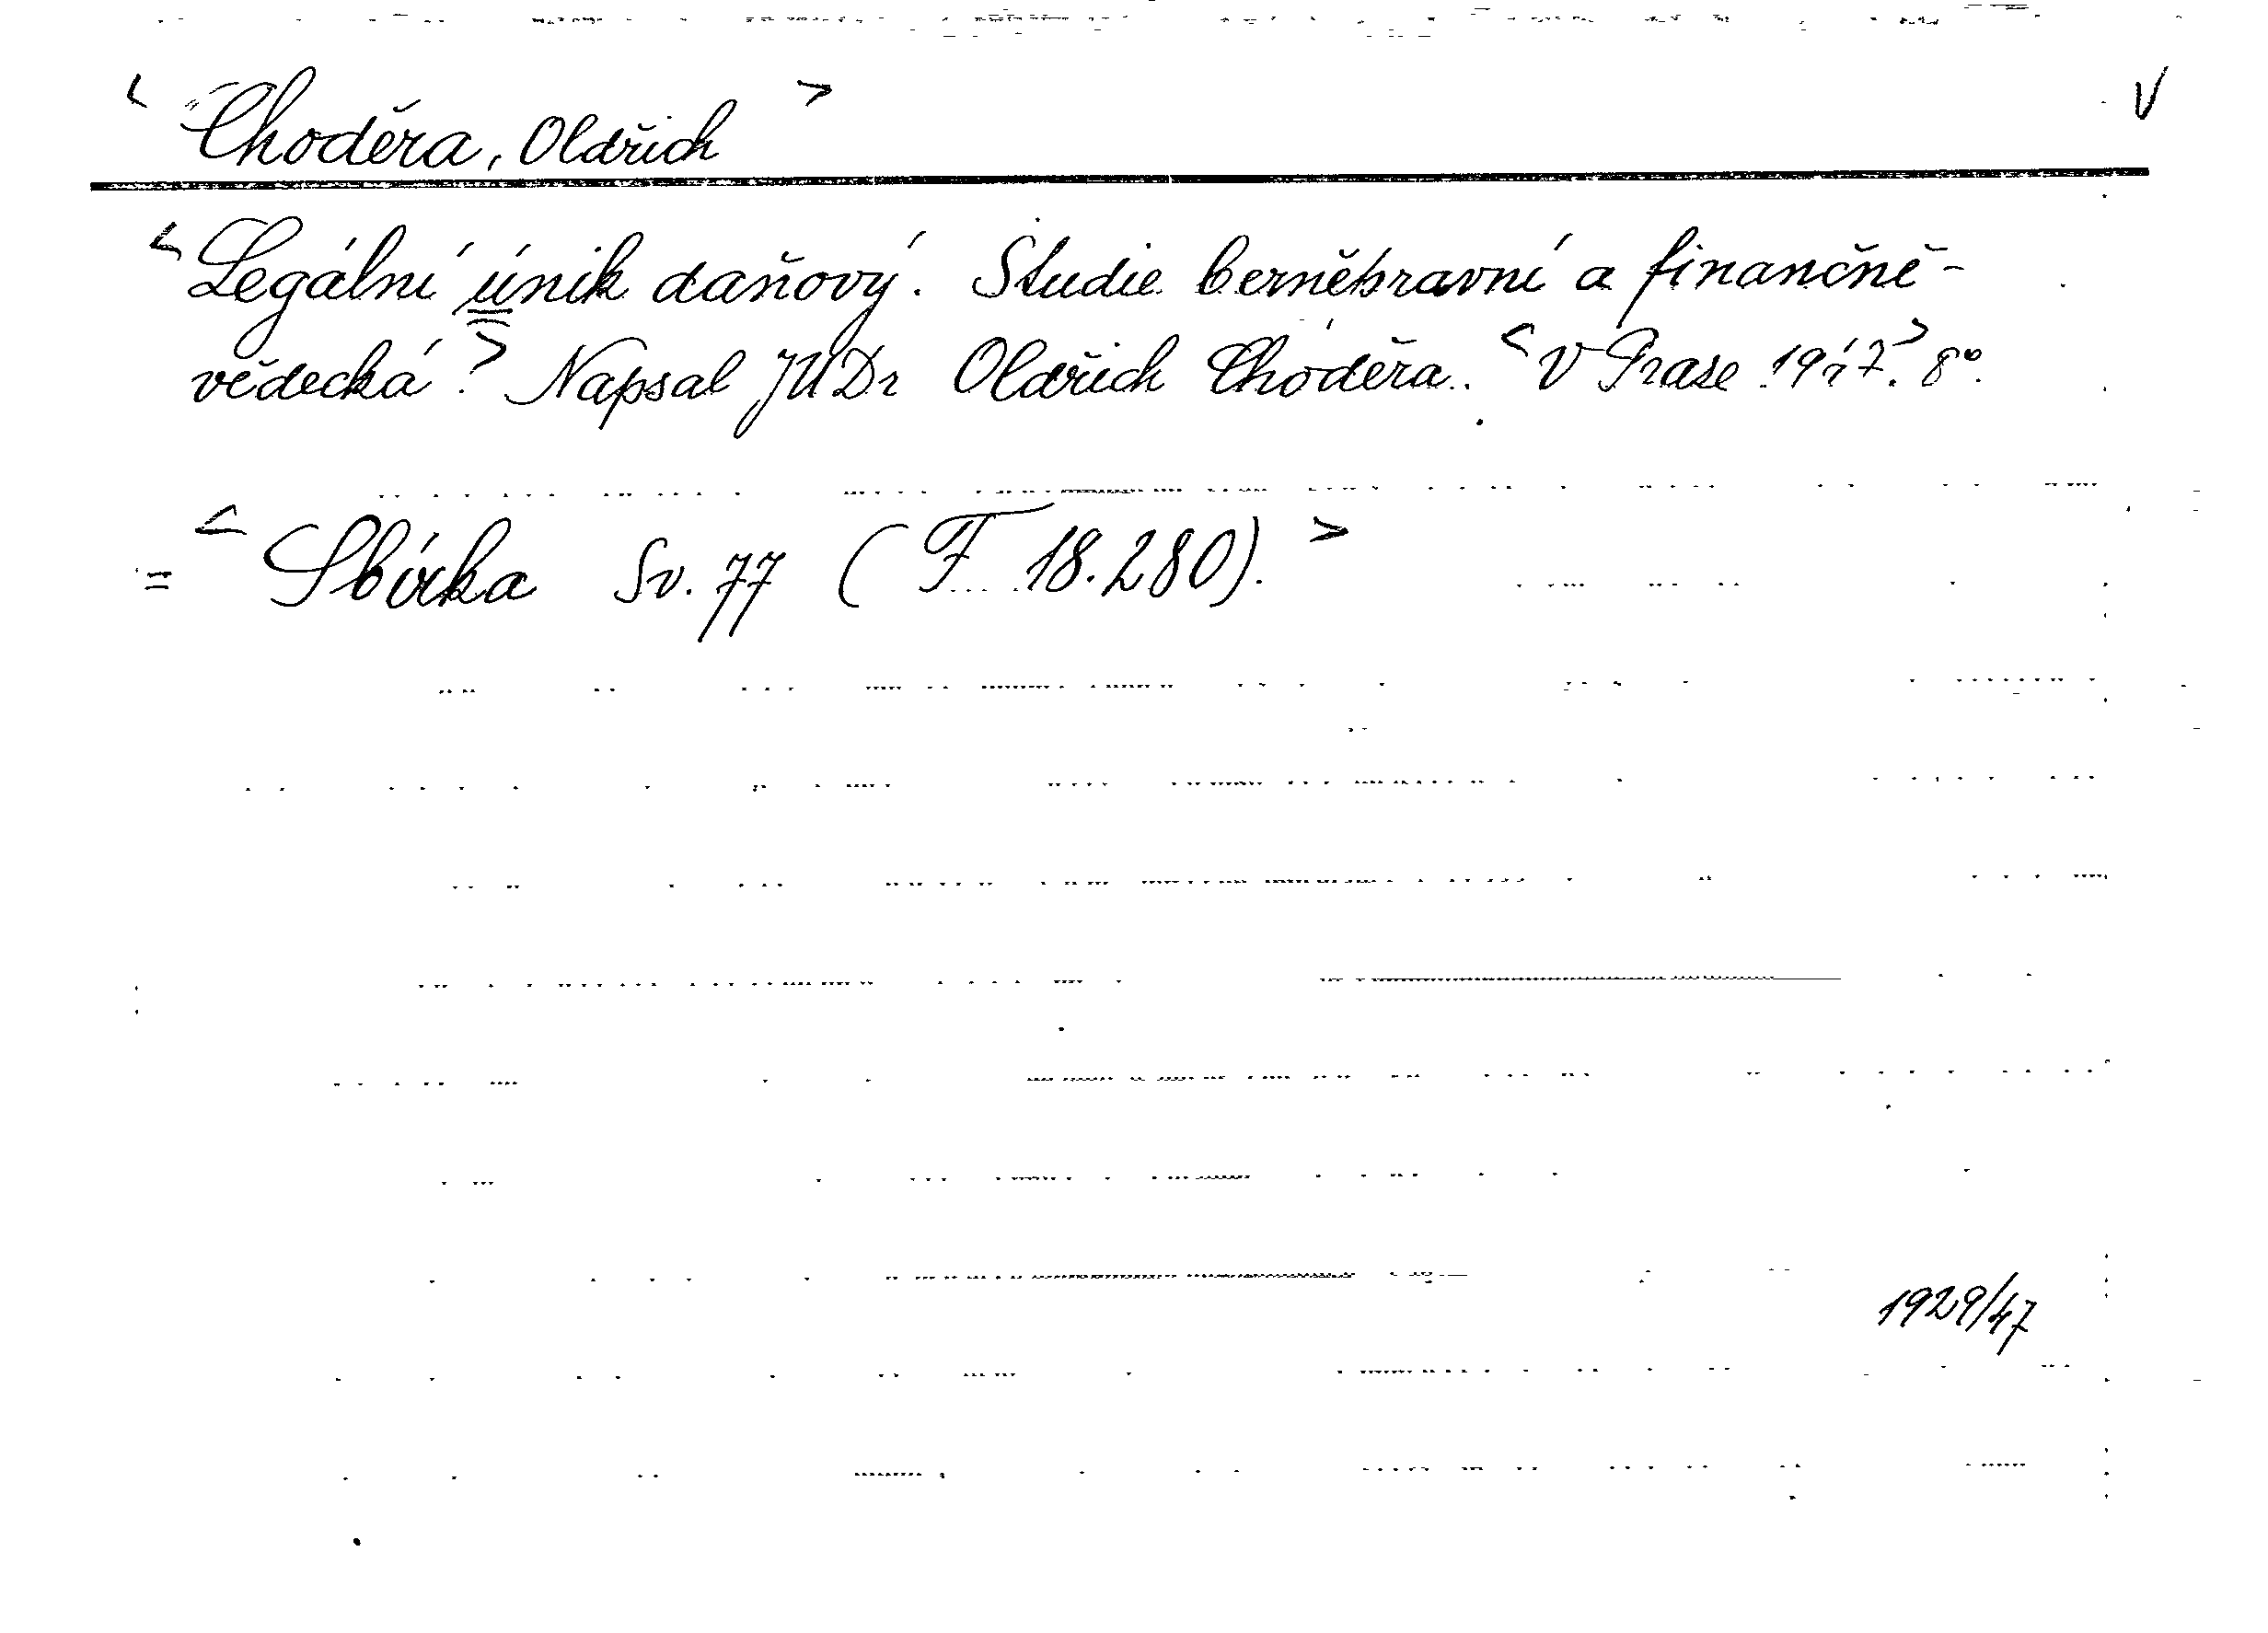 < Choděra, Oldřich > V
< Legální únik daňový. Studie berněpravní a finančně-
vědecká. > Napsal JUDr Oldřich Choděra. < V Praze 1947. > 8°.
= < Sbírka Sv. 77 (F 18.280). >
1929/47